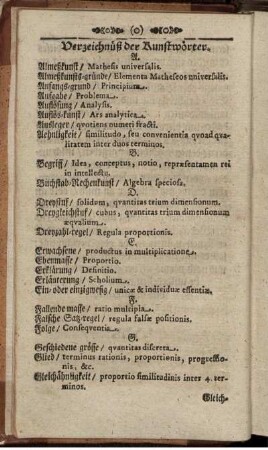 (o)
Verzeichnüß der Kunstwörter.
A.
Almeßkunst / Mathesis universalis.
Almeßkunsts-gründe / Elementa Matheseos universalis.
Anfangs-grund / Principium.
Aufgabe / Problema.
Auflösung / Analysis.
Auflös-kunst / Ars analytica.
Ausleger / quotiens numeri fracti.
Aehnligkeit / similitudo, seu convenientia quoad qua-
litatem inter duos terminos.
B.
Begriff / Idea, conceptus, notio, repræsentamen rei
in intellectu.
Buchstab-Rechenkunst / Algebra speciosa.
D.
Dreystuf / solidum, quantitas trium dimensionum.
Dreygleichstuf / cubus, quantitas trium dimensionum
æqualium.
Dreyzahl-regel / Regula proportionis.
E.
Erwachsene / productus in multiplicatione.
Ebenmasse / Proportio.
Erklärung / Definitio.
Erläuterung / Scholium.
Ein- oder einzigwesig / unicæ & individuæ essentiæ.
F.
Fallende masse / ratio multipla.
Falsche Satz-regel / regula falsæ positionis.
Folge / Consequentia.
G.
Geschiedene grösse / quantitas discreta.
Glied / terminus rationis, proportionis, progressio-
nis, &c.
Gleichähnligkeit / proportio similitudinis inter 4. ter-
minos.
Gleich-